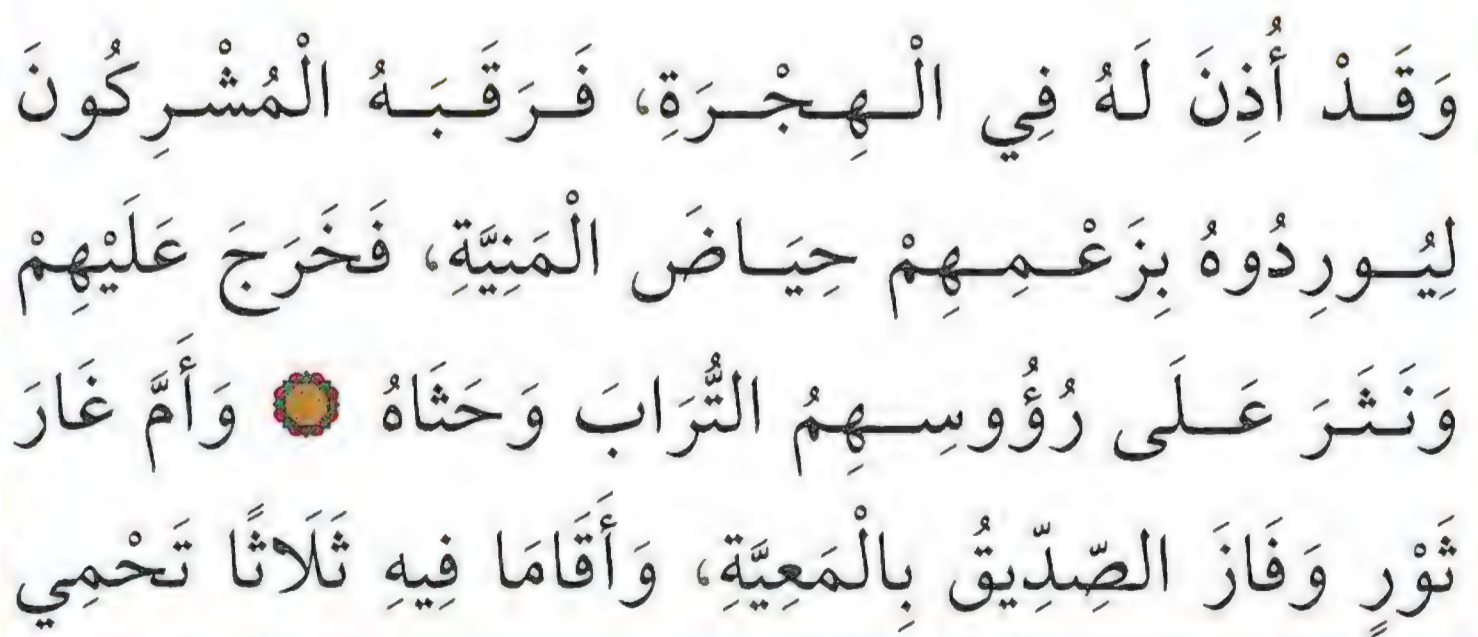 وَقَدْ أُذِنَ لَهُ فِي الْهِجْرَةِ، فَرَقَبَهُ الْمُشْرِكُونَ
لِيُورِدُوهُ بِزَعْمِهِمْ حِيَاضَ الْمَنِيَّةِ، فَخَرَجَ عَلَيْهِمْ
وَنَثَرَ عَلَى رُؤُوسِهِمُ التُّرَابَ وَحَثَاهُ ۝ وَأَمَّ غَارَ
ثَوْرٍ وَفَازَ الصِّدِّيقُ بِالْمَعِيَّةِ، وَأَقَامَا فِيهِ ثَلَاثًا تَحْمِي